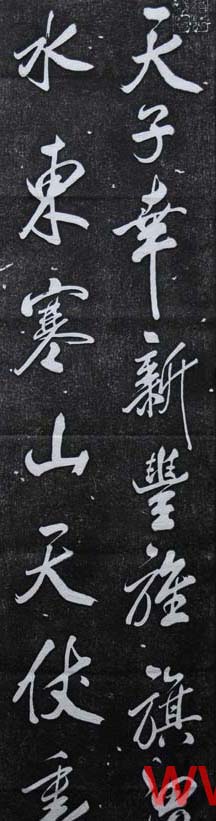 天子幸新豐旌旗渭
水東寒山天仗